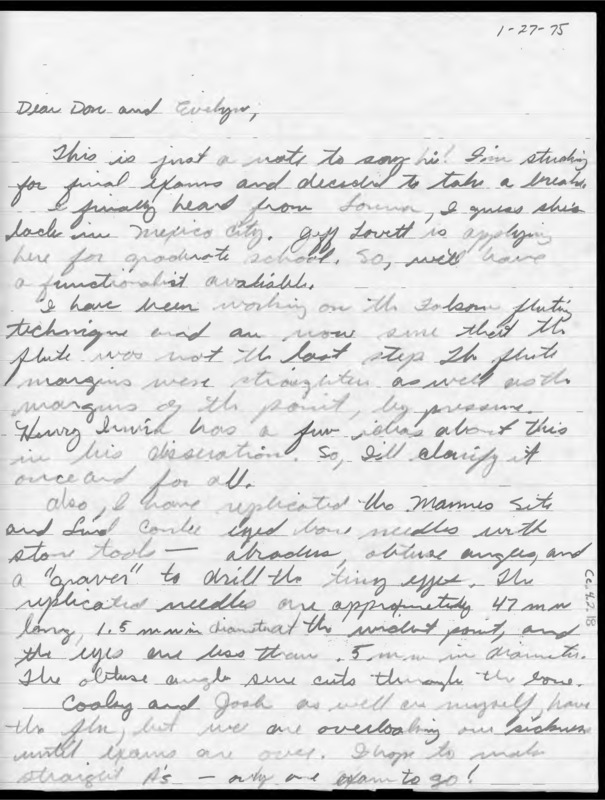 1-27-75
Dear Don and Evelyn,
This is just a note to say hi! I'm studing
for final exams and decided to take a break.
I finally heard from Lorena, I guess shes
back in Mexico City. Jeff Lovett is applying
here for graduate school. So, we'll have
a functionalist avaliable.
I have been working on the Folsom fluting
technique and am now sure that the
flute was not the last step. The flute
margins were straighten as well as the
margins of the point, by pressure.
Henry Irwin has a few ideas about this
in his disseration. So, I'll clarify it
once and for all.
Also, I have replicated the Mammes Site
and Lind eyed bone needles with
stone tools — abraders, obtuse angles, and
a "graver" to drill the tiny eyes. The
replicated needles are approximetely 47 mm
long, 1.5 mm in diameter at the widest point, and
the eyes are less than .5 mm in diameter.
The obtuse angle sure cuts through the bone.
Cooley and Josh as well as myself, have
the flu, but we are overlooking our sickness
until exams are over. I hope to make
straight A's — only one exam to go!